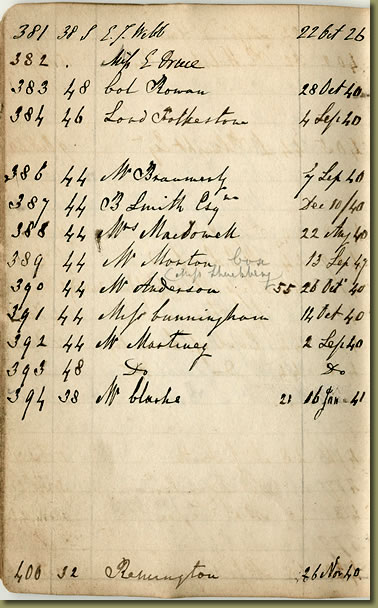 381 38 S E. J. Webb 22 Oct 26
382 . Miss E Druce
383 48 Col Rowan 28 Oct 40
384 46 Lord Folkestone 4 Sep 40
386 44 Mr 7 Sep 40
387 44 B Smith Esqre Dec 10/40
388 44 Mrs MacDowell 22 Aug 40
389 44 Mr Morton 13 Sep 47
Miss
390 44 Mr Anderson 55 26 Oct 40
391 44 Miss Cunningham 14 Oct 40
392 44 Mr Martinez 2 Sep 40
393 48 Do Do
394 38 Mr Clarke 21 16 Jan 41
400 32 Remington 26 Nov 40